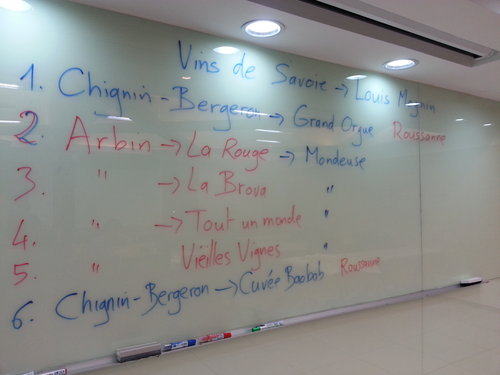 Vins de Savoie → Louis Magnin
1. Chignin-Bergeron → Grand Orgue Roussanne
2. Arbin → La Rouge → Mondeuse
3. " → La Brova "
4. " → Tout un monde "
5. " Vieilles Vignes "
6. Chignin-Bergeron → Cuvée Baobab Roussanne